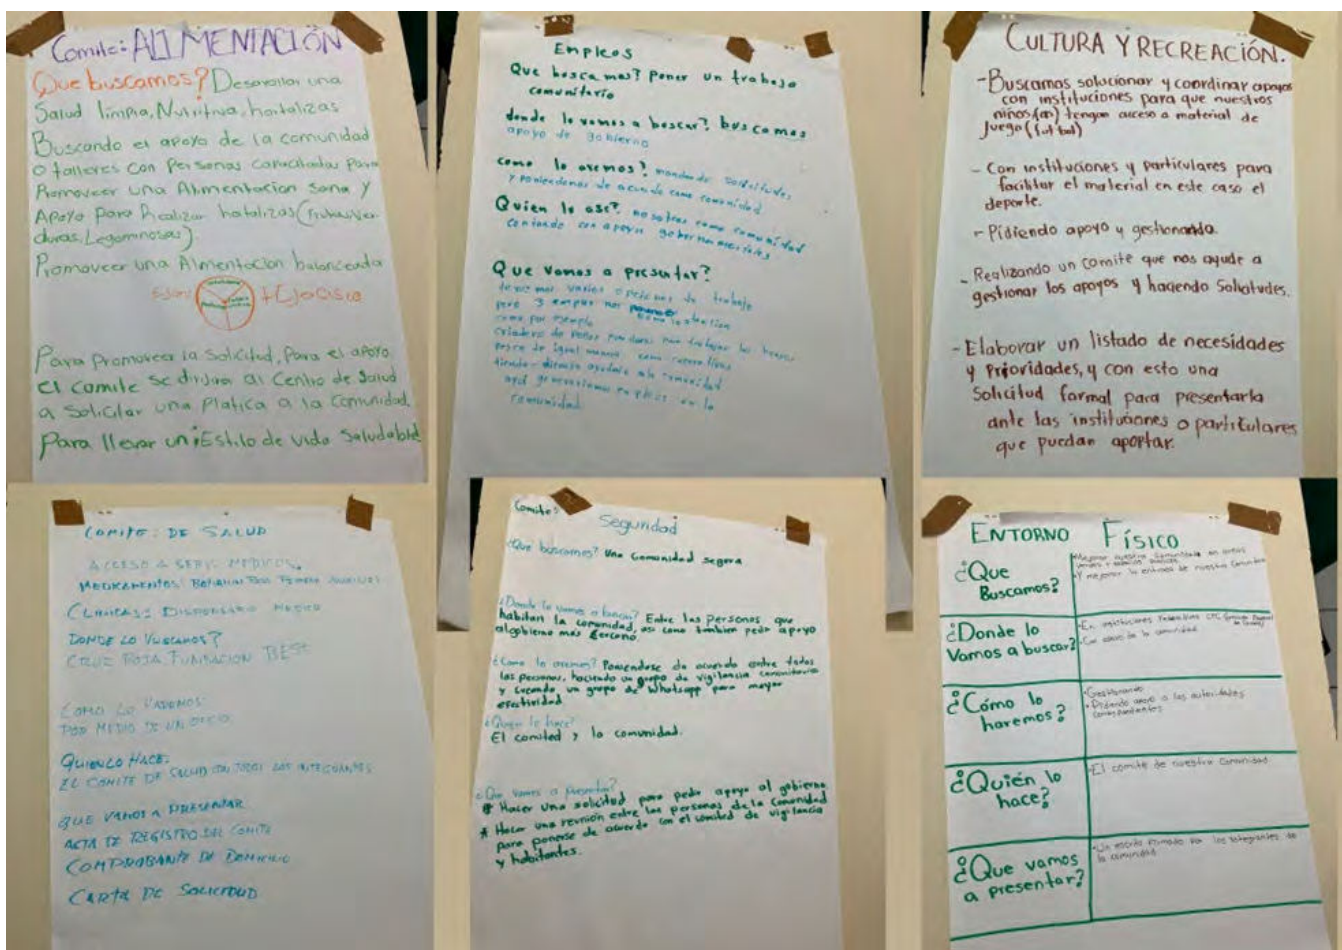 Comite: ALIMENTACIÓN
Que buscamos? Desarrollar una
Salud limpia, Nutritiva, hortalizas
Buscando el apoyo de la comunidad
o talleres con Personas capacitadas para
Promoveer una Alimentacion sana y
Apoyo para Realizar hotalizas (frutas, Ver-
duras, Leguminosas).
Promoveer una Alimentacion balanceada
Para promoveer la solicitud, Para el apoyo
el Comite se dirijira al Centro de Salud
a Solicitar una Platica a la Comunidad.
Para llevar un Estilo de vida Saludable
Empleos
Que bosca mos? Poner un trabajo
comunitario
donde lo vamos a boscar? buscamos
apoyo de gobierno
como lo aremos? mandando solicitudes
y poniendonos de acuerdo como comunidad
Quien lo ase? nosotros como comunidad
contando con apoyos gubernamentales
Que vamos a presentar?
tenemos varias opciones de trabajo
pero 3 empleos nos
como por ejemplo
criadero de
pesca de igual manera como cooperativa
comunidad
CULTURA Y RECREACIÓN.
- Buscamos solucionar y coordinar apoyos
con instituciones para que nuestros
niños(as) tengan acceso a material de
juego (futbol)
- Con instituciones y particulares para
facilitar el material en este caso el
deporte.
- Pidiendo apoyo y gestionando.
- Realizando un comite que nos ayude a
gestionar los apoyos y haciendo Solicitudes.
- Elaborar un listado de necesidades
y Prioridades, y con esto una
Solicitud formal para presentarla
ante las instituciones o particulares
que puedan aportar.
COMITE: DE SALUD
ACCESO A SERV. MEDICOS,
MEDICAMENTOS BOTIQUIN PRIMEROS AUXILIOS
CLINICAS: DISPENSARIO MEDICO
DONDE LO VUSCAMOS?
CRUZ ROJA FUNDACION BEST
COMO LO HAREMOS
POR MEDIO DE UN OFICIO
QUIEN LO HACE:
EL COMITE DE SALUD CON TODOS LOS INTEGRANTES
QUE VAMOS A PRESENTAR
ACTA DE REGISTRO DEL COMITE
COMPROBANTE DE DOMICILIO
CARTA DE SOLICITUD
Comite:
Seguridad
¿Que buscamos? Una comunidad segura
¿Donde lo vamos a buscar? Entre las Personas que
habitan la comunidad, así como tambien pedir apoyo
al gobierno más cercano.
¿Como lo aremos? Poniendose de acuerdo entre todas
las personas, haciendo un grupo de vigilancia comunitaria
y creando un grupo de Whatsapp para mayor
efectividad
¿Quien lo hace?
El comited y la comunidad.
¿Que vamos a presentar?
* Hacer una solicitud para pedir apoyo al gobierno
* Hacer una reunión entre las personas de la comunidad
para ponerse de acuerdo con el comited de vigilancia
y habitantes.
ENTORNO FÍSICO
¿Que
Buscamos?
• Mejorar nuestra comunidad en areas
verdes y espacios publicos.
• Y mejorar la entrada de nuestra comunidad
¿Donde lo
Vamos a buscar?
• En instituciones Federativas CFE
• Con apoyo de la comunidad
¿Cómo lo
haremos?
• Gestionando
• Pidiendo apoyo a las autoridades
correspondientes
¿Quién lo
hace?
• El comite de nuestra comunidad
¿Que vamos
a presentar?
• Un escrito firmado por los integrantes de
la comunidad.